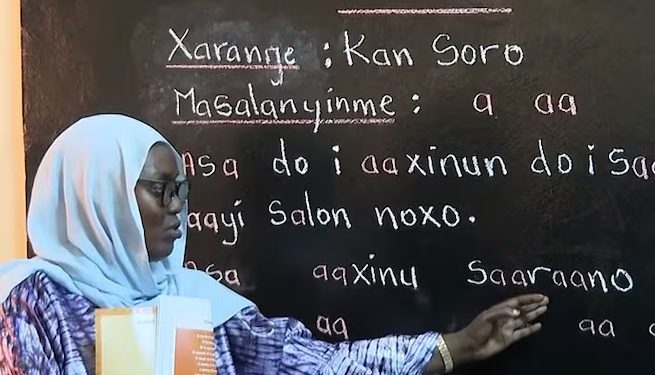 Xaranŋe : Kan Soro
Masalanyinme : a aa
Asa do i aaxinun do i
aayi Salon noxo.
aaxinu Saaraano
aa aa